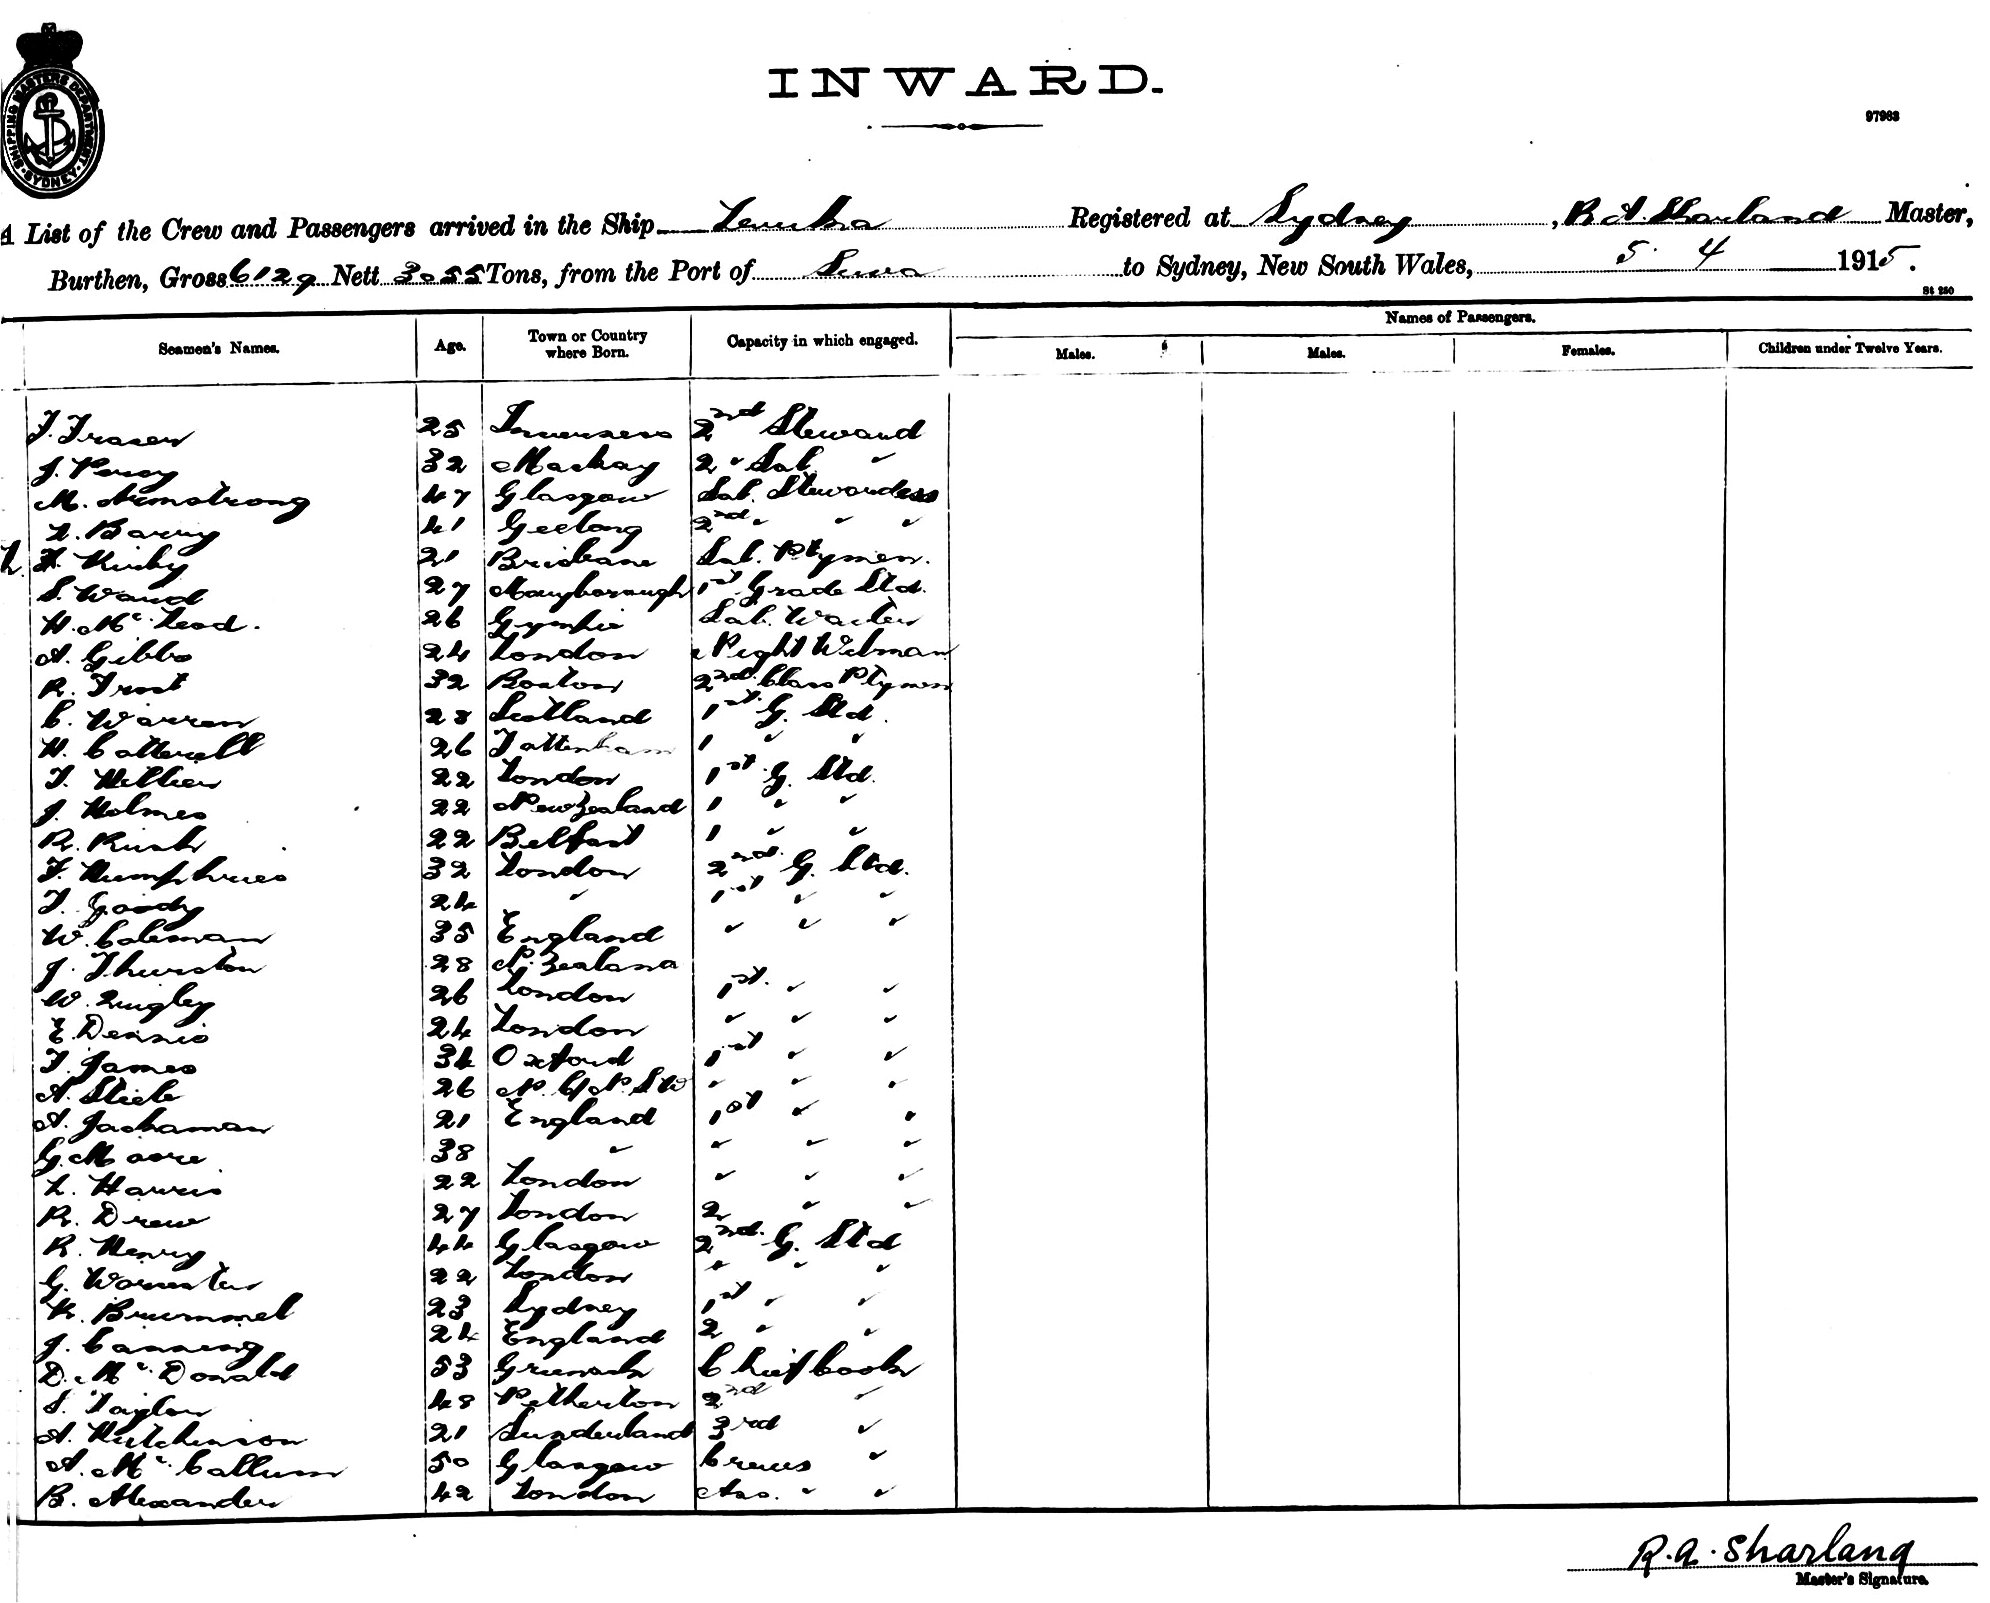 INWARD.
97963
SHIPPING MASTERS DEPARTMENT SYDNEY
A List of the Crew and Passengers arrived in the Ship Levuka Registered at Sydney, R A. Sharland Master,
Burthen, Gross 6129 Nett 3055 Tons, from the Port of Suva to Sydney, New South Wales, 5. 4 1915.
St 250
Seamen's Names. Age. Town or Country where Born. Capacity in which engaged. Names of Passengers.
Males. Males. Females. Children under Twelve Years.
F. Fraser 25 Inverness 2nd Steward
J. Percy 32 Mackay 2 " Sal. "
M. Armstrong 47 Glasgow Sal. Stewardess
L. Barry 41 Geelong 2nd " " "
Kirby 21 Brisbane Sal. Ptymen.
S. Wand 27 Maryborough 1st Grade Std.
H. Mc Leod. 26 Gympie Sal. Waiter
A. Gibbs 24 London Night Watman
R. Frost 32 Boston 2nd Class Ptymen
C. Warren 28 Scotland 1st G. Std.
H. Catterell 26 Tattenham 1 " "
T. Hellier 22 London 1st G. Std.
J. Holmes 22 New Zealand 1 " "
R. Rush 22 Belfast 1 " "
F. Humphries 32 London 2nd. G. Std.
T. Goody 24 " 1st " "
W. Coleman 35 England " " "
J. Thurston 28 N. Zealand
W. Quigley 26 London 1st. " "
E. Dennis 24 London " " "
F. James 34 Oxford 1st " "
A. Stiele 26 N. C/ N. S W " " "
A. Jachaman 21 England 1st " "
G. Moore 38 " " " "
L. Harris 22 London " " "
R. Drew 27 London 2 " "
R. Henry 44 Glasgow 2nd. G. Std
G. Worcester 22 London " " "
K. Brummel 23 Sydney 1st " "
J. Canning 24 England 2 " "
D. Mc Donald 53 Greenock Chief Cook
S. Taylor 48 Petherton 2nd "
A. Hutchinson 21 Sunderland 3rd "
A. Mc Callum 50 Glasgow Crews "
B. Alexander 42 London Ass. " "
R.A. Sharland
Master's Signature.